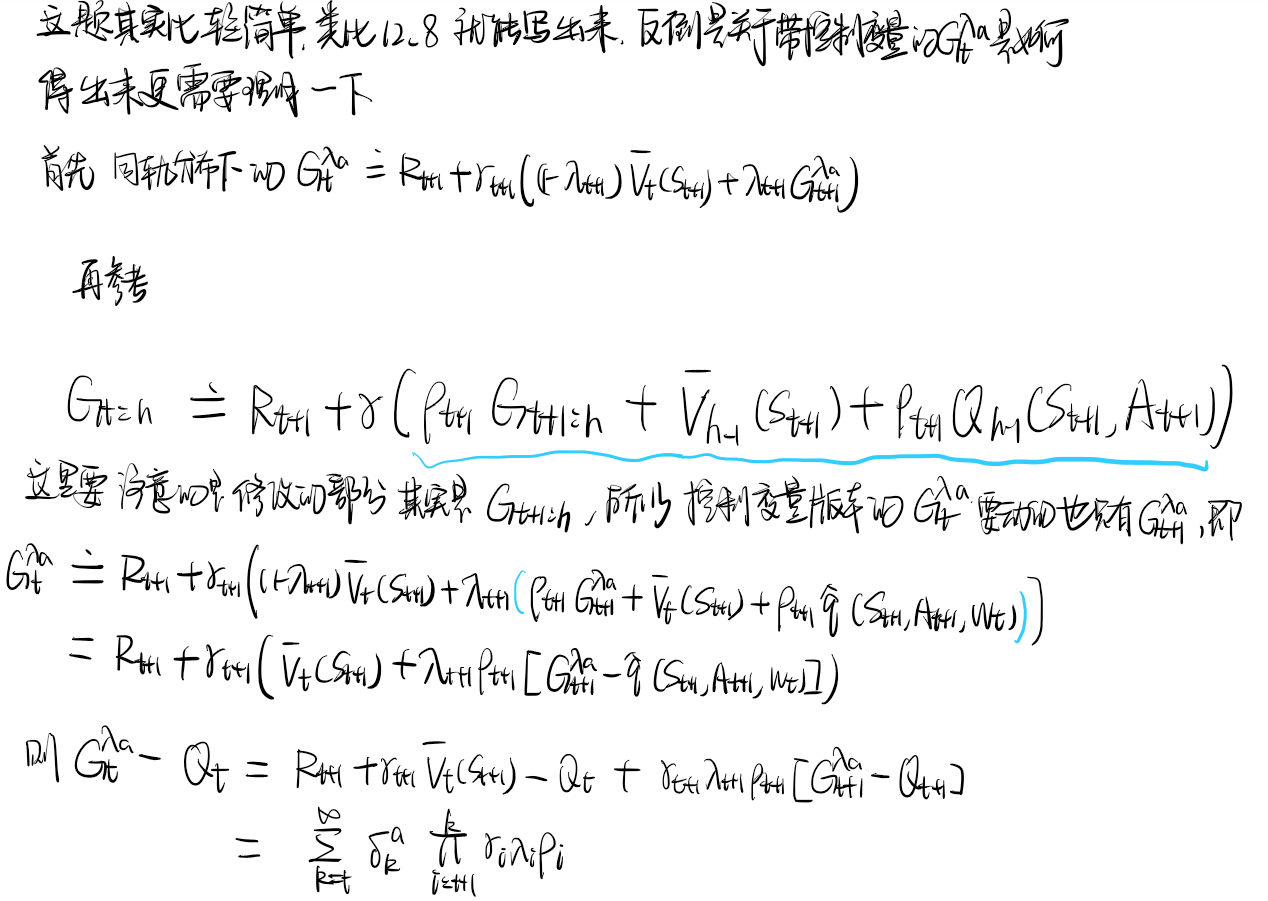 这题其实比较简单,类比12.8就能写出来,反倒是关于带控制变量的G_t^{λa}是如何
得出来更需要说明一下
首先 同轨分布下的 G_t^{λa} ≐ R_{t+1} + γ_{t+1}((1-λ_{t+1}) V̄_t(S_{t+1}) + λ_{t+1} G_{t+1}^{λa})
再参考
G_{t:h} ≐ R_{t+1} + γ(ρ_{t+1} G_{t+1:h} + V̄_{h-1}(S_{t+1}) + ρ_{t+1} Q_{h-1}(S_{t+1}, A_{t+1}))
这里要注意的是修改的部分其实是 G_{t+1:h}, 所以控制变量版本的 G_t^{λa} 要动的也只有 G_{t+1}^{λa}, 即
G_t^{λa} ≐ R_{t+1} + γ_{t+1}((1-λ_{t+1}) V̄_t(S_{t+1}) + λ_{t+1}(ρ_{t+1} G_{t+1}^{λa} + V̄_t(S_{t+1}) + ρ_{t+1} q̂(S_{t+1}, A_{t+1}, w_t))]
= R_{t+1} + γ_{t+1}(V̄_t(S_{t+1}) + λ_{t+1} ρ_{t+1} [G_{t+1}^{λa} - q̂(S_{t+1}, A_{t+1}, w_t)])
则 G_t^{λa} - Q_t = R_{t+1} + γ_{t+1} V̄_t(S_{t+1}) - Q_t + γ_{t+1} λ_{t+1} ρ_{t+1} [G_{t+1}^{λa} - Q_{t+1}]
= ∑_{k=t}^{∞} δ_k^a ∏_{i=t+1}^{k} γ_i λ_i ρ_i